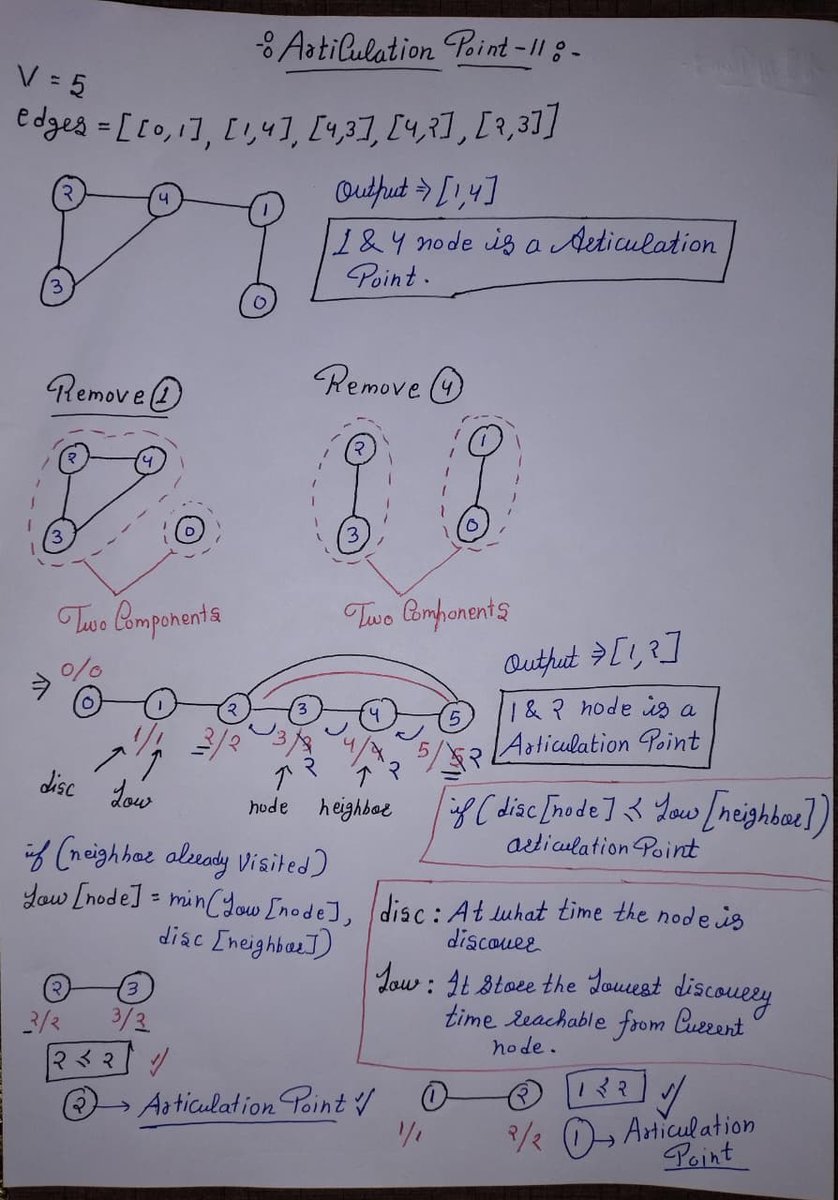 -: Articulation Point-II :-
V = 5
edges = [[0,1], [1,4], [4,3], [4,2], [2,3]]
2 4 1
3 0
Output ⇒ [1,4]
1 & 4 node is a Articulation
Point.
Remove 1
Remove 4
2 4
3 0
2 1
3 0
Two Components
Two Components
⇒ 0/0
0 1 2 3 4 5
1/1 2/2 3/3 2 4/4 2 5/5 2
disc Low node neighbor
Output ⇒ [1,2]
1 & 2 node is a
Articulation Point
if (disc[node] ≤ Low[neighbor])
articulation Point
if (neighbor already Visited)
Low[node] = min(Low[node],
disc[neighbor])
disc : At what time the node is
discover
Low : It Store the Lowest discovery
time reachable from Current
node.
2 3
2/2 3/2
2 ≤ 2 ✓
2 → Articulation Point ✓
1 2
1/1 2/2
1 ≤ 2 ✓
1 → Articulation
Point